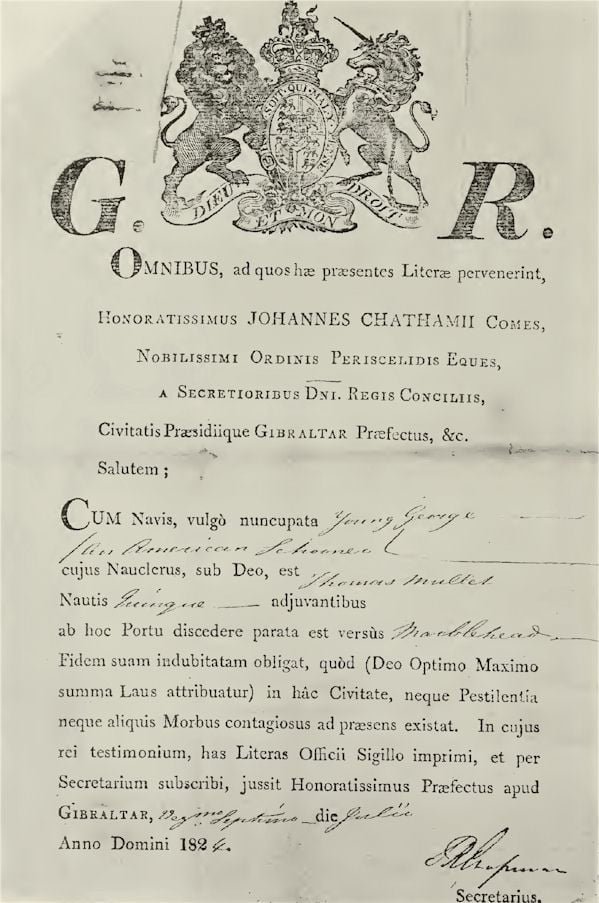 HONI SOIT QUI MAL Y PENSE
DIEU ET MON DROIT
G. R.
OMNIBUS, ad quos hæ præsentes Literæ pervenerint,
HONORATISSIMUS JOHANNES CHATHAMII COMES,
NOBILISSIMI ORDINIS PERISCELIDIS EQUES,
A SECRETIORIBUS DNI. REGIS CONCILIIS,
Civitatis Præsidiique GIBRALTAR Præfectus, &c.
Salutem;
CUM Navis, vulgò nuncupata Young George
An American Schooner
cujus Nauclerus, sub Deo, est Thomas Mullet
Nautis Quinque adjuvantibus
ab hoc Portu discedere parata est versùs Marblehead
Fidem suam indubitatam obligat, quòd (Deo Optimo Maximo
summa Laus attribuatur) in hâc Civitate, neque Pestilentia
neque aliquis Morbus contagiosus ad præsens existat. In cujus
rei testimonium, has Literas Officii Sigillo imprimi, et per
Secretarium subscribi, jussit Honoratissimus Præfectus apud
GIBRALTAR, Septimo die Julii
Anno Domini 1824.
Chapman
Secretarius.